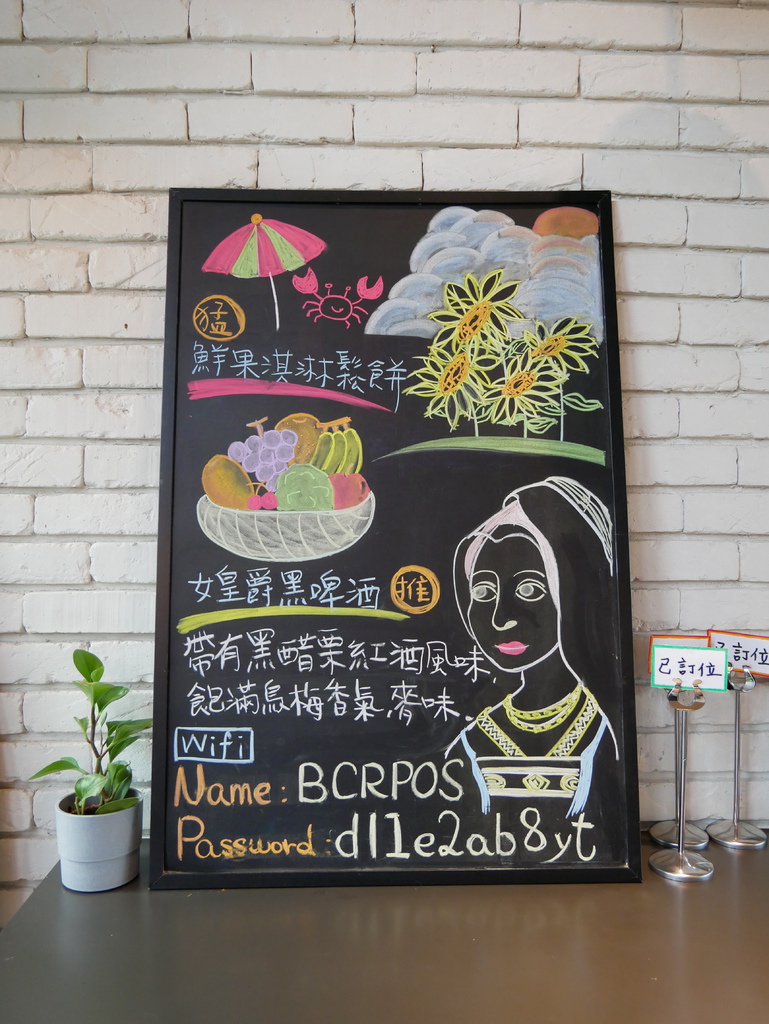 猛
鮮果淇淋鬆餅
女皇爵黑啤酒 推
帶有黑醋栗紅酒風味,
飽滿烏梅香氣,麥味.
Wifi
Name: BCRPOS
Password: dl1e2ab8yt
已訂位
已訂位